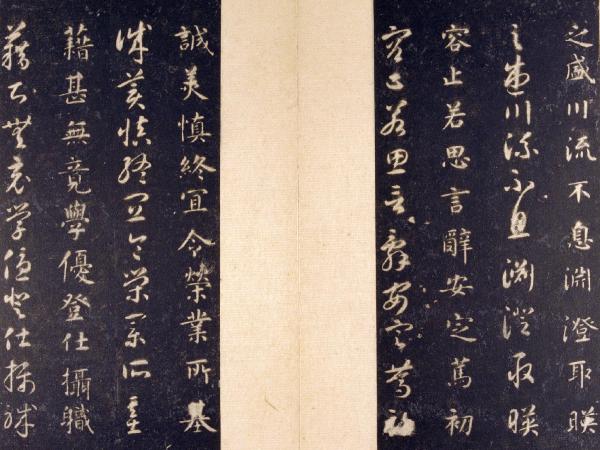 之盛川流不息淵澄取暎
之盛川流不息淵澄取暎
容止若思言辭安定篤初
容止若思言辭安定篤初
誠美慎終宜令榮業所基
誠美慎終宜令榮業所基
籍甚無竟學優登仕攝職
籍甚無竟學優登仕攝職